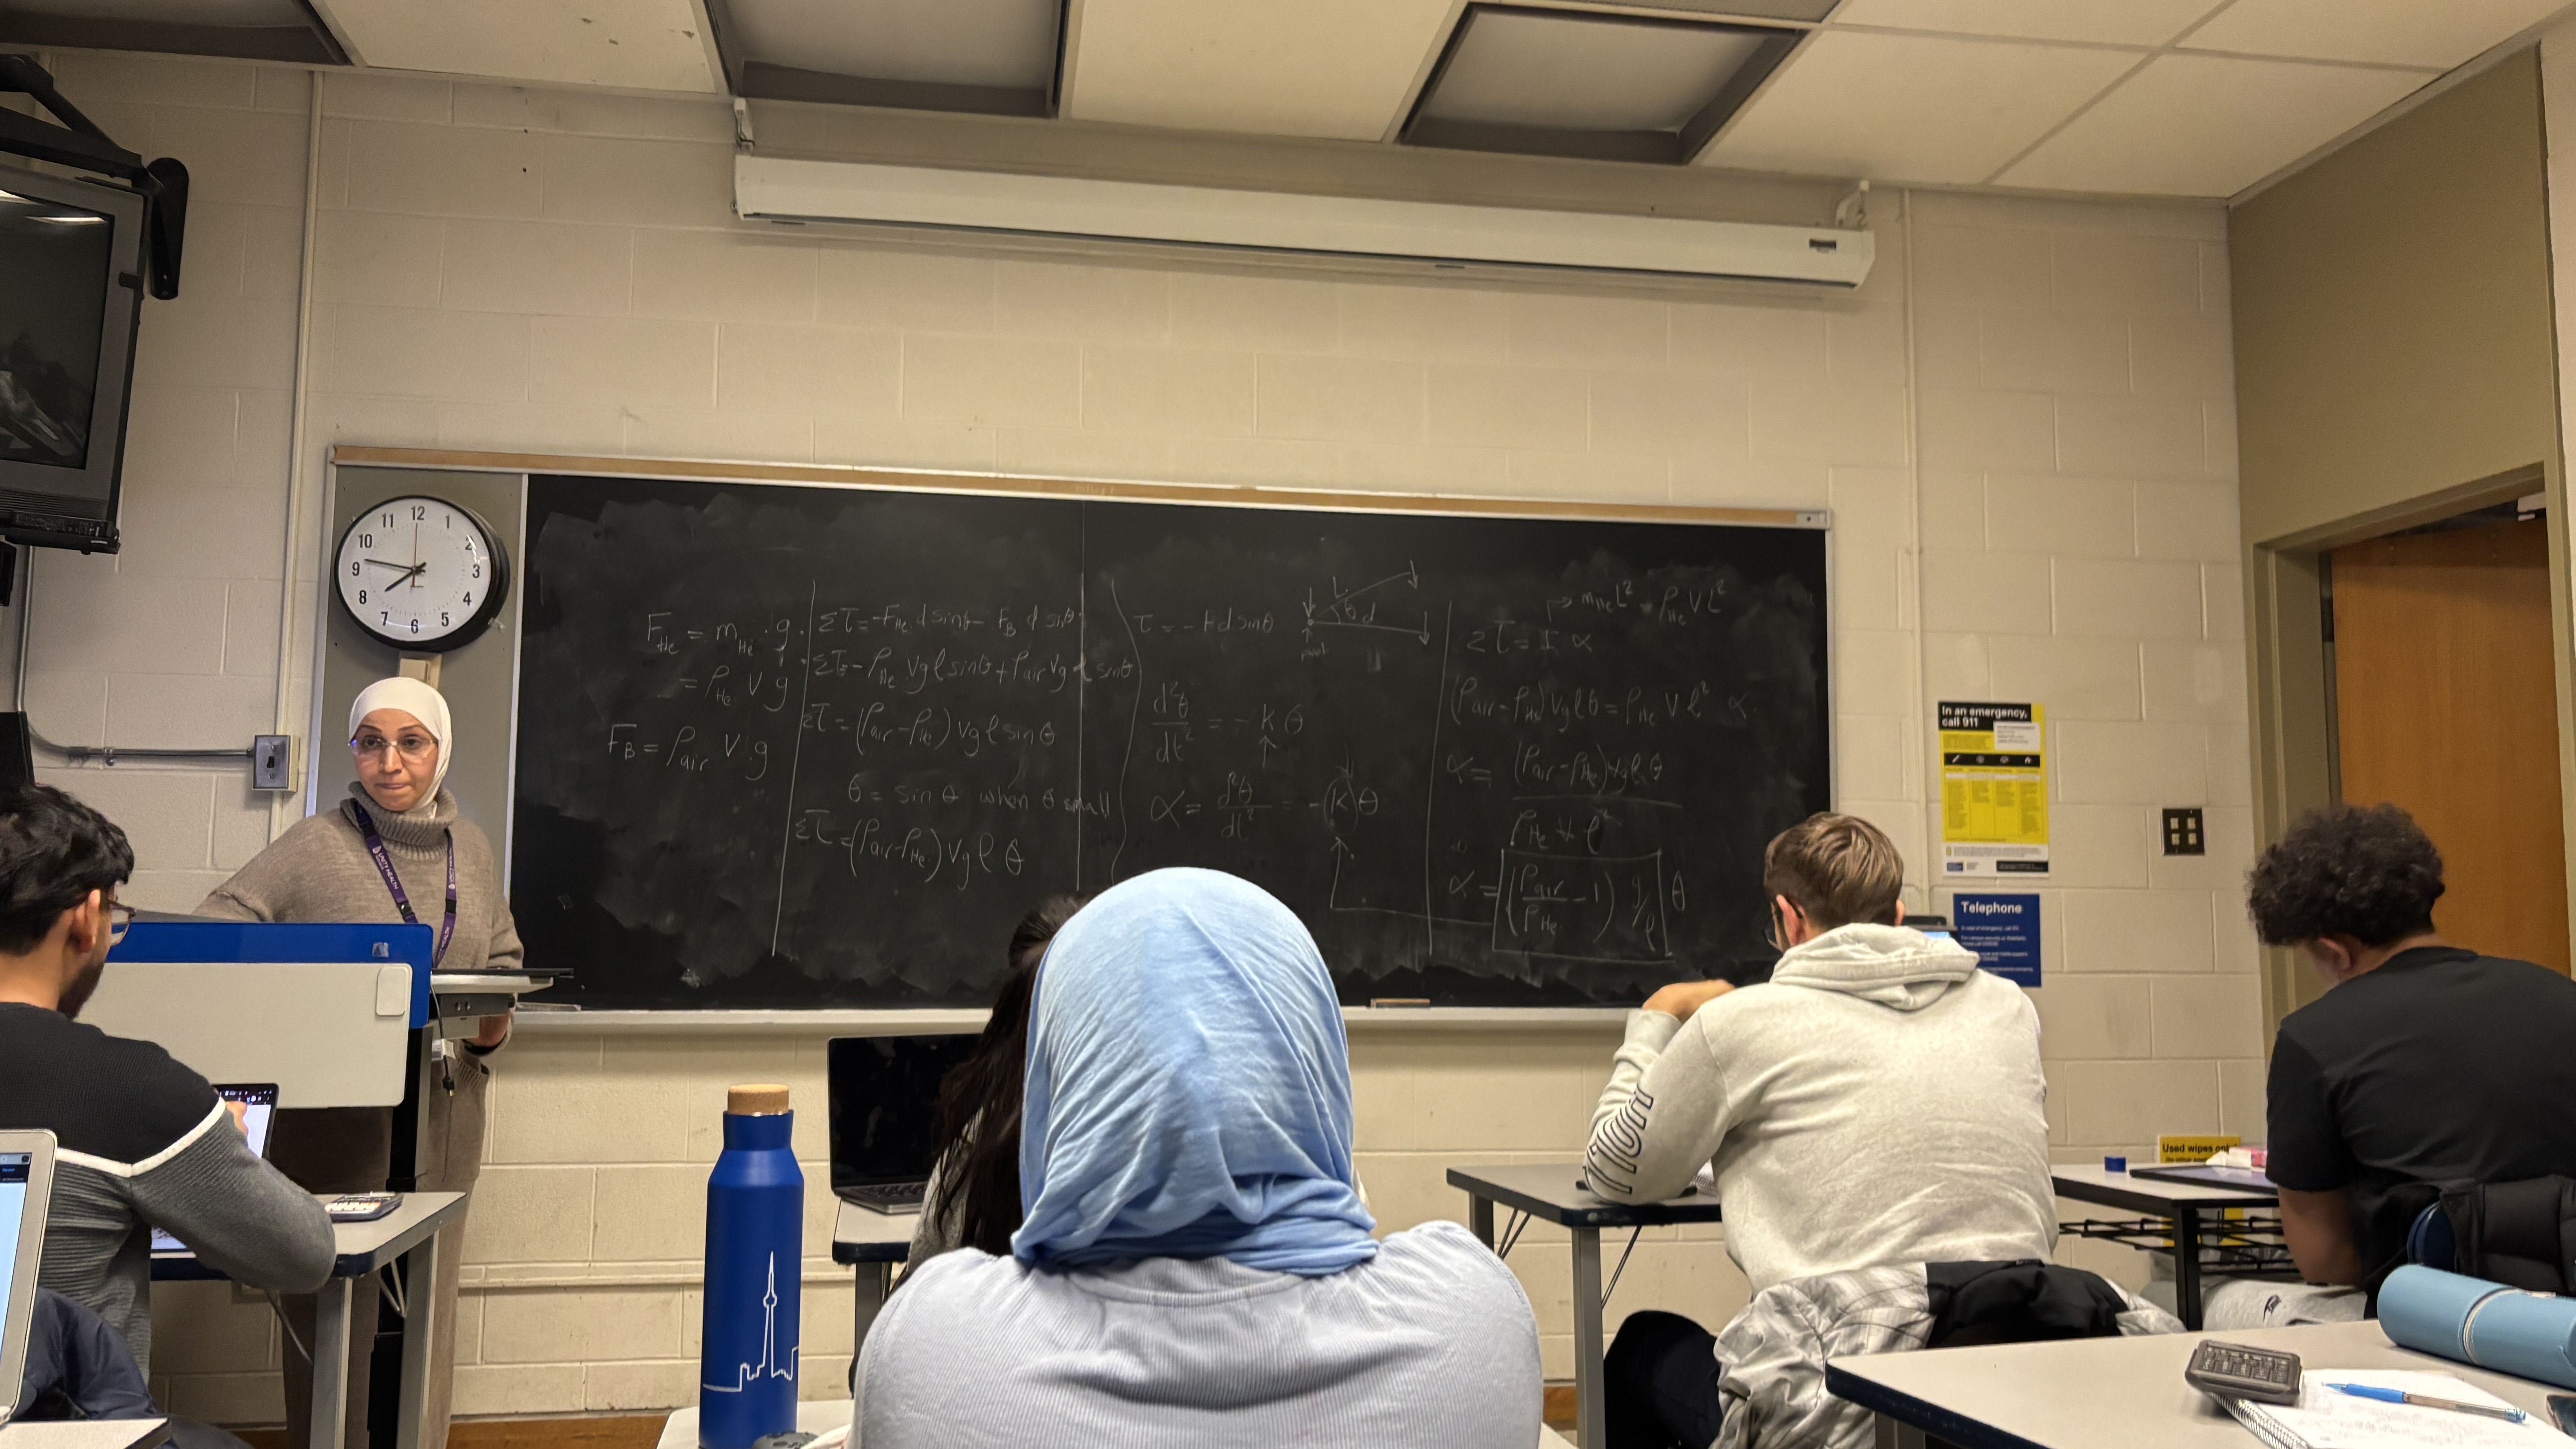 12
11 1
10 2
9 3
8 4
7 5
6
F_He = m_He · g
= ρ_He V g
F_B = ρ_air V · g
Στ = -F_He d sinθ - F_B d sinθ
Στ = -ρ_He Vgℓ sinθ + ρ_air Vgℓ sinθ
Στ = (ρ_air - ρ_He) Vgℓ sinθ
θ = sin θ when θ small
Στ = (ρ_air - ρ_He) Vgℓ θ
τ = -Fd sinθ
L
θ d
pivot
d²θ/dt² = -kθ
α = d²θ/dt² = -(k)θ
→ m_He L² = ρ_He V L²
Στ = I α
(ρ_air - ρ_He) Vgℓθ = ρ_He V ℓ² α
α = (ρ_air - ρ_He) Vgℓθ / ρ_He V ℓ²
α = (ρ_air/ρ_He - 1) g/ℓ θ
In an emergency,
call 911
Telephone
UNITY HEALTH
Used wipes only